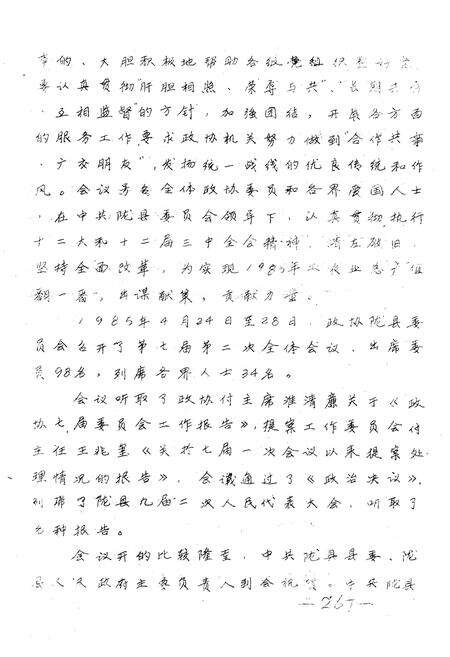 章的、大胆积极地帮助各级党组织整好党。
要认真贯彻"肝胆相照、荣辱与共"、"长期共存
、互相监督"的方针，加强团结，开展各方面
的服务工作，要求政协机关努力做到"合作共事
、广交朋友"，发扬统一战线的优良传统和作
风。会议号召全体政协委员和各界爱国人士
，在中共陇县委员会领导下，认真贯彻执行
十二大和十二届三中全会精神，清左破旧，
坚持全面改革，为实现1985年工农业总产值
翻一番，出谋献策，贡献力量。
1985年4月24日至28日，政协陇县委
员会召开了第七届第二次全体会议，出席委
员98名，列席各界人士34名。
会议听取了政协付主席淮清廉关于《政
协七届委员会工作报告》，提案工作委员会付
主任王兆玺《关于七届一次会议以来提案处
理情况的报告》，会议通过了《政治决议》，
列席了陇县九届二次人民代表大会，听取了
几种报告。
会议开的比较隆重，中共陇县县委、陇
县人民政府主要负责人到会祝贺。中共陇县
—267—